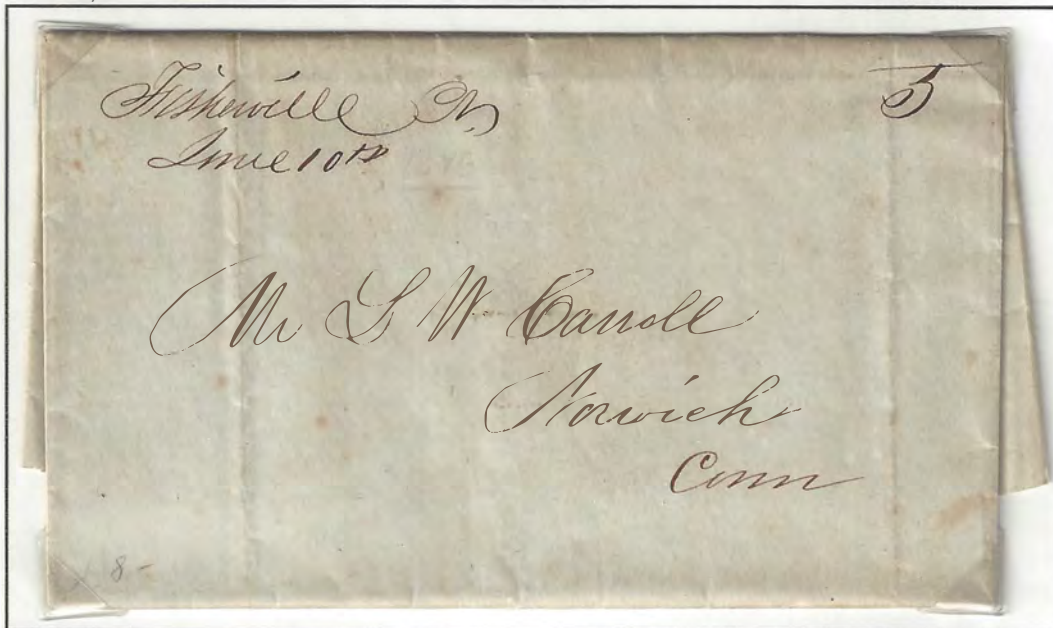 Fisherville
June 10th
5
Mr L W Carroll
Norwich
Conn
8-